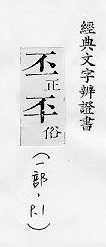 經典文字辨證書
丕正
㔻俗
(一部,P.1)